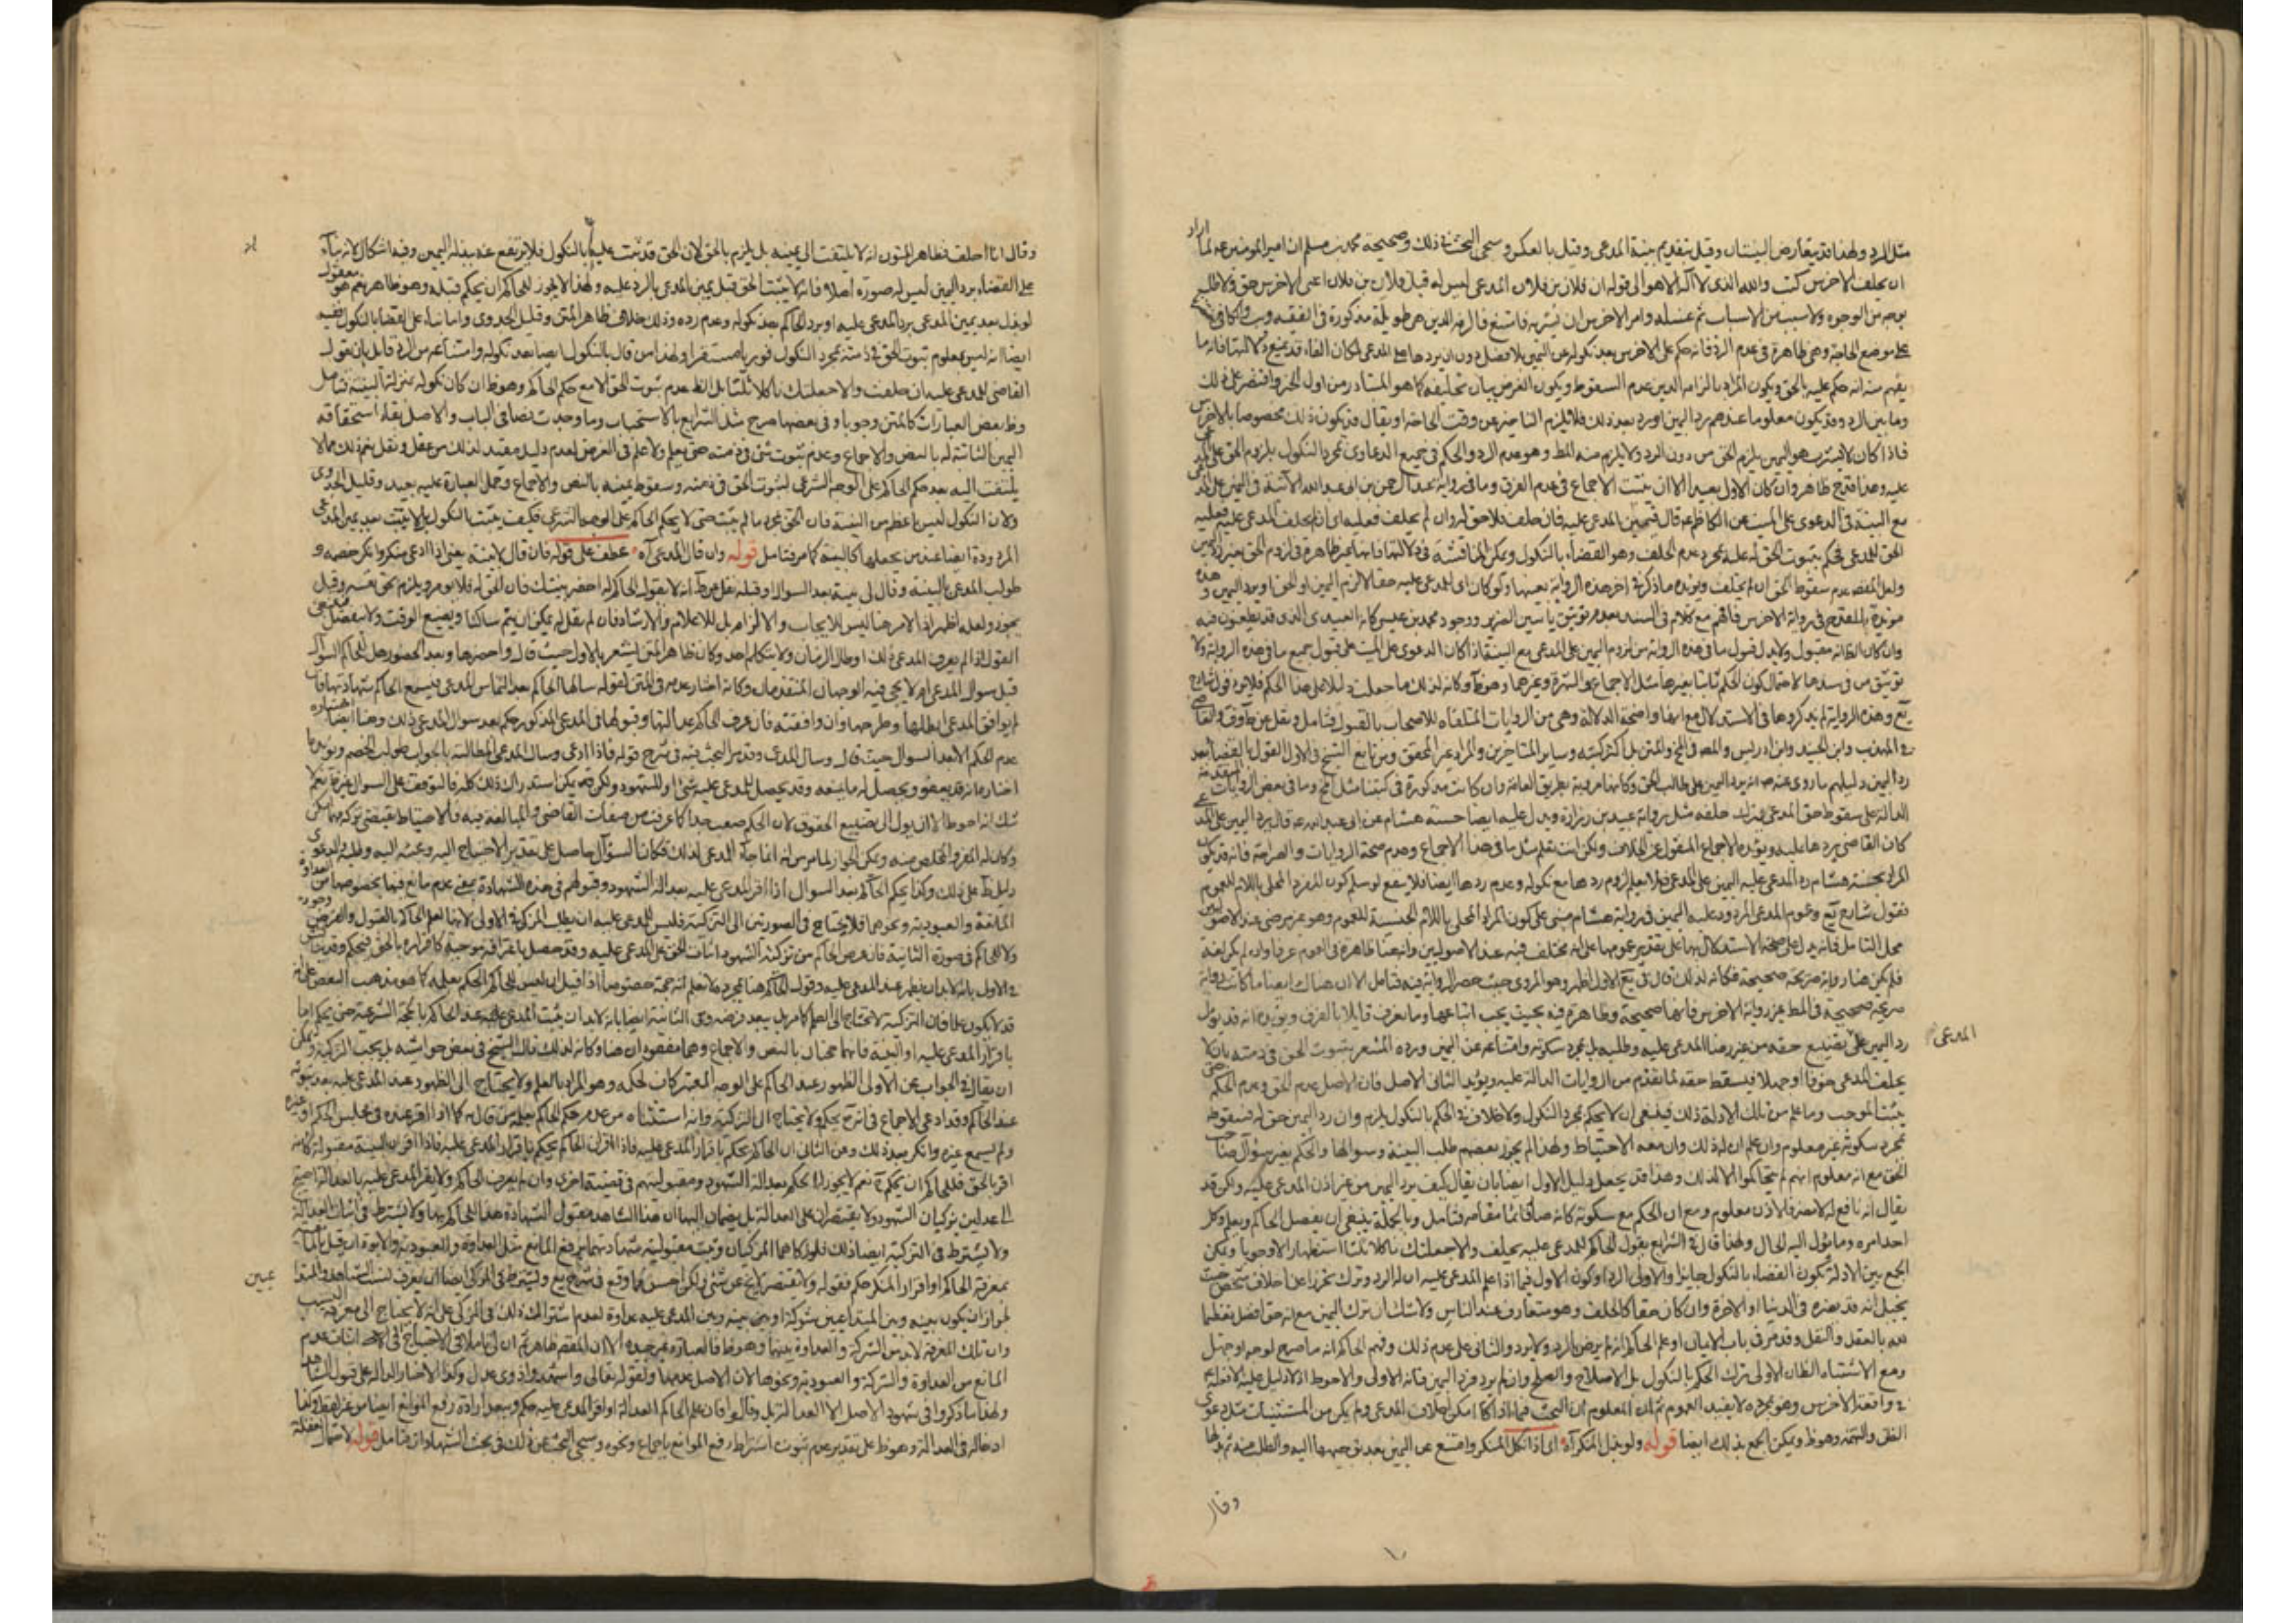 مثل الرد ولهذا قد يتعارض البينتان وقيل بتقديم بينة المدعى وقيل بالعكس وسيجئ البحث في ذلك وصحيحة محمد بن مسلم ان امير المؤمنين ع لما اراد
ان يحلف الاخرس كتب والله الذى لا اله الا هو الى قوله ان فلان بن فلان المدعى ليس له قبل فلان بن فلان اعنى الاخرس حق ولا طلبة
بوجه من الوجوه ولا سبب من الاسباب ثم غسله وامر الاخرس ان يشربه فامتنع فالزمه الدين هى طويلة مذكورة فى الفقيه
على موضع الحاجة وهى ظاهرة فى عدم الرد فانه حكم على الاخرس بعد نكوله عن اليمين بلا فصل دون ان يردها على المدعى لمكان الفاء قد يمنع دلالتها فانه ما
يفهم منه انه حكم عليه بالحق ويكون المراد بالزامه الدين عدم السقوط ويكون الغرض بيان تحليفه كما هو المتبادر من اول الخبر واقتصر على ذلك
وما بين الرد وقد يكون معلوما عندهم رد اليمين او رد بعد ذلك فلا يلزم التاخير عن وقت الحاجة او يقال قد يكون ذلك مخصوصا بالاخرس
فاذا كان لا يشرب هو اليمين يلزم الحق من دون الرد ولا يلزم منه المط وهو عدم الرد والحكم فى جميع الدعاوى بمجرد النكول بلزوم الحق على
عليه وهذا قدح ظاهر وان كان الاول بعيدا الا ان يثبت الاجماع فى عدم الفرق وما فى رواية عبد الرحمن بن ابى عبد الله الآتية فى اليمين على المدعى
مع البينة فى الدعوى على الميت عن الكاظم ع قال فيمين المدعى عليه فان حلف فلا حق له وان لم يحلف فعليه اى ان لم يحلف المدعى عليه فعليه
الحق للمدعى فحكم بثبوت الحق له عليه بمجرد عدم الحلف وهو القضاء بالنكول ويمكن المناقشة فى دلالتها فانها غير ظاهرة فى لزوم الحق بغير رد اليمين
ولعل المقصد عدم سقوط الحق ان لم يحلف ويؤيده ما ذكر فى اخر هذه الرواية بعينها ولو كان اى المدعى عليه حيا لالزم اليمين او الحق او يرد اليمين
مؤيدة بالمقدم فى رواية الاخرس فافهم مع كلام فى السند بعدم توثيق ياسين الضرير ووجود محمد بن عيسى كانه العبيدى الذى قد يطعنون فيه
وان كان الظ انه مقبول ولا بد لقبول ما فى هذه الرواية من لزوم اليمين على المدعى مع البينة اذا كان الدعوى على الميت على قبول جميع ما فى هذه الرواية ولا
توثيق من فى سندها لاحتمال كون الحكم ثابتا بغيرها مثل الاجماع والشهرة وغيرهما وهو ظ وكانه لذلك ما جعلت دليلا على هذا الحكم
يع وهذه الرواية لم يذكروها فى الاستدلال مع انها واضحة الدلالة وهى من الروايات المتلقاه للاصحاب بالقبول فتامل ونقل عن ط وف
فى المهذب وابن الجنيد وابن ادريس والمصنف فى المتن بل اكثر كتبه وساير المتاخرين والمراد غير المحقق ومن تابع الشيخ فى الاول القول بالقضاء بعد
رد اليمين دليلهم ما روى عنه ص انه رد اليمين على طالب الحق وكانها مروية بطريق العامة وان كانت مذكورة فى كتبنا مثل وما فى بعض الروايات
الدالة على سقوط حق المدعى بترك حلفه مثل رواية عبيد بن زرارة ويدل عليه ايضا حسنة هشام عن ابى عبد الله ع قال يرد اليمين على المدعى
كان القاضى يردها عليه ويؤيده الاجماع المنقول عن الخلاف ولكن انت تعلم مثل ما فى هذا الاجماع وعدم صحة الروايات والصراحة فانه قد يكون
المراد بحسنة هشام رد المدعى عليه اليمين على المدعى فلا يعلم لزوم ردها مع نكوله وعدم ردها ايضا فلا ينفع لو سلم كون المفرد المحلى باللام للعموم
فقول شارح يع وعموم المدعى المردود عليه اليمين فى رواية هشام مبنى على كون المراد المحلى باللام الجنسية للعموم وهو غير مرضى عند الاصوليين
محل التامل فانه يدل على صحة الاستدلال بها على تقدير عمومها على انه مختلف فيه عند الاصوليين وانهما ظاهرة فى العموم عرفا وان لم يكن لغة
فلم يكن هنا رواية صريحة صحيحة فكانه لذلك قال فى يع الاول اظهر وهو المروى حيث حصر الرواية فيه فتامل الا ان هناك ايضا ما كانت رواية
صريحة صحيحة فى المط غير رواية الاخرس فانها صحيحة وظاهرة فيه بحيث يجب اتباعها وما نعرف قايلا بالفرق ويؤيده انه قد يؤل
رد اليمين على المدعى تضييع حقه من غير رضا المدعى عليه وطلبه بل بمجرد سكوته وامتناعه عن اليمين ورده المشعر بثبوت الحق فى ذمته بان لا
يحلف المدعى خوفا او جهلا فيسقط حقه لما تقدم من الروايات الدالة عليه ويؤيد الثانى الاصل فان الاصل عدم الحق وعدم الحكم حتى
يثبت الموجب وما علم من تلك الادلة ذلك فينبغى ان لا يحكم بمجرد النكول ولا خلاف فى الحكم بالنكول يلزم وان رد اليمين حق له فسقوطه
بمجرد سكوته غير معلوم وان علم ان له ذلك وان معه الاحتياط ولهذا لم يجوز بعضهم طلب البينة وسوالها والحكم بغير سؤال صاحب
الحق مع انه معلوم انهم لم يتحاكموا الا لذلك وهذا قد يجعل دليل الاول ايضا بان يقال كيف يرد اليمين من غير اذن المدعى عليه ولكن قد
يقال انه نافع له لا مضر فالاذن معلوم ومع ان الحكم مع سكوته كانه صار قائما مقامه فتامل وبالجملة ينبغى ان يفصل الحاكم ويعلم وكل
احد امره وما يؤل اليه الحال ولهذا قال فى الشرايع يقول الحاكم للمدعى عليه يحلف والا جعلتك ناكلا ثلاثا استظهارا لا وجوبا ويمكن
الجمع بين الادلة بكون القضاء بالنكول جايزا والاولى بالرد او كون الاول فيما اذا علم المدعى عليه ان له الرد وترك تحرزا على خلاف شخص حيث
يخيل انه قد يضره فى الدنيا او الاخرة وان كان حقا كالحلف وهو متعارف عند الناس ولا شك ان ترك اليمين مع انه حق افضل تعظيما
لله بالعقل والنقل وقد مر فى باب الايمان او علم الحاكم انه لم يرض بالرد ولا يرد والثانى على عدم ذلك وفهم الحاكم انه ما صرح لوجه او جهل
ومع الاشتباه الظان الاولى ترك الحكم بالنكول بل الاصلاح والصلح وان لم يرد فرد اليمين فانه الاولى والاحوط اذ لا دليل عليه الا
فى واقعة الاخرس وهو بمجرده لا يفيد العموم ثم ان المعلوم ان البحث فيما اذا كان امكن احلاف المدعى ولم يكن من المستثنيات مثل دعوى
الظن والتهمة وهو ظ ويمكن الجمع بذلك ايضا قوله ولو بذل المنكر آه اى اذا نكل المنكر وامتنع عن اليمين بعد توجهها اليه والطلب منه ثم بذلها
المدعى
وقال
وقال انا احلف فظاهر المتون انه لا يلتفت الى يمينه بل يلزم بالحق لان الحق قد ثبت عليه بالنكول فلا يرتفع عنه ببذله اليمين وفيه اشكال لانه بناء
على القضاء برد اليمين ليس له صورة اصلا فانه لا يثبت الحق قبل يمين المدعى بالرد عليه ولهذا لا يجوز للحاكم ان يحكم قبله وهو ظاهر نعم هو معقول
لو بذل بعد يمين المدعى برد المدعى عليه او برد الحاكم بعد نكوله وعدم رده وذلك خلاف ظاهر المتن وقليل الجدوى واما بناء على القضا بالنكول ففيه
ايضا انه ليس بمعلوم ثبوت الحق فى ذمته بمجرد النكول فورا مستقرا ولهذا من قال بالنكول ايضا بعد نكوله وامتناعه من الرد قايل بان يقول
القاضى للمدعى عليه ان حلفت والا جعلتك ناكلا ثلثا بل الظ عدم ثبوت الحق الا مع حكم الحاكم وهو ظ وان كان نكوله بمنزلة البينة فتامل
وظ بعض العبارات كالمتن وجوبا وفى بعضها صرح مثل الشرايع بالاستحباب وما وجدت نصا فى الباب والاصل بقاء استحقاقه
اليمين الثابتة له بالنص والاجماع وعدم ثبوت شئ فى ذمته حتى يعلم ولا علم فى الفرض لعدم دليل مفيد لذلك من عقل ونقل نعم ذلك مما لا
يلتفت اليه بعد حكم الحاكم على الوجه الشرعى لثبوت الحق فى ذمته وسقوط يمينه بالنص والاجماع وحمل العبارة عليه بعيد وقليل الجدوى
ولان النكول ليس باعظم من البينة فان الحق بمجردها لم يثبت حتى لا يحكم الحاكم على الوجه الشرعى فكيف يثبت بالنكول بل لا يثبت بعد يمين المدعى
المردودة ايضا عند من يجعلها كالبينة كما مر فتامل قوله وان قال المدعى آه عطف على قوله فان قال لا بينة يعنى اذا ادعى منكرا وانكر خصمه و
طولب المدعى بالبينة وقال لى بينة بعد السؤال او قبله نقل عن ط انه لا يقول الحاكم له احضر بينتك فان الحق له فلا يومر ويلزم بحق نفسه وقيل
يجوز ولعله اظهر اذ الامر هنا ليس للايجاب والالزام بل للاعلام والارشاد فان لم يقل له يمكن ان يتم ساكتا ويضيع الوقت ولا ينفصل
القول اذا لم يعرف المدعى ذلك او طال الزمان ولا يتكلم احد وكان ظاهر المتن يشعر بالاول حيث قال واحضرها وبعد الحضور هل للحاكم السؤال
قبل سوال المدعى ام لا يجى فيه الوجهان المتقدمان وكانه اختار عدمه فى المتن لقوله سالها الحاكم بعد التماس المدعى فيسمع الحاكم شهادتها فان
لم يوافق المدعى ابطلها وطرحها وان وافقته فان عرف الحاكم عدالتها وقبولها فى المدعى المذكور حكم بعد سوال المدعى ذلك وهنا ايضا اختياره
عدم الحكم الا بعد السوال حيث قال وسال المدعى وقد مر البحث فيه فى شرح قوله فاذا ادعى وسال المدعى المطالبة بالجواب طولب الخصم
اختاره انه قد يعفو ويحصل له ما ينفعه وقد يحصل للمدعى عليه شئ او للشهود ولكن قد يمكن استدراك ذلك كله فالتوقف على السؤال
شك انه احوط الا ان يؤل الى تضييع الحقوق لان الحكم صعب جدا كما عرفت من صفات القاضى والمبالغة فيه فالاحتياط يقتضى تركه مهما امكن
وكان له المفر والمخلص منه ويمكن الجواز لما مر من انه انما جاء المدعى لذلك فكان السؤال حاصل على تقدير الاحتياج اليه وعينه اليه وطلبه والدعوى
دليل ظ على ذلك وكذا يحكم الحاكم بعد السوال اذا اقر المدعى عليه بعدالة الشهود وقبولهم فى هذه الشهادة بمعنى عدم مانع فيها بخصوصها من العداوة
المانعة والعبودية ونحوهما فلا يحتاج فى الصورتين الى التزكية فليس للمدعى عليه ان يطلب المزكى فى الاولى لانها لعلم الحاكم بالقبول والفرض وجوده
ولا للحاكم فى صورة الثانية فان غرض الحاكم من تزكية الشهود اثبات الحق على المدعى عليه وقد حصل باعترافه موجبه كاقراره بالحق فيحكم وقد يناقش
فى الاول بانه لا بد ان يظهر عند المدعى عليه وقول الحاكم هنا بمجرده لا نعلم انه حجة خصوصا اذا قيل ان ليس للحاكم الحكم بعلمه كما هو مذهب البعض على انه
قد لا يكون علما فان التزكية لا تحتاج الى العلم كما مر بل يبعد فرضه وفى الثانية ايضا بانه لا بد ان يثبت المدعى عليه عند الحاكم بالحجة الشرعية حتى يحكم اما
باقرار المدعى عليه او البينة فانهما حجتان بالنص والاجماع وهما مفقودان هنا وكانه لذلك قال الشيخ فى بعض حواشيه بل يجب التزكية ويمكن
ان يقال فى الجواب عن الاولى الظهور عند الحاكم على الوجه المعتبر كان لحكمه وهو المراد بالعلم ولا يحتاج الى الظهور عند المدعى عليه بعد ثبوته
عند الحاكم وقد ادعى الاجماع فى شرح يع بحكم ولا يحتاج الى التزكية وانه استثناه من عدم حكم الحاكم بعلمه من قال به كما اذا اقر عنده فى مجلس الحكم او غيره
ولم يسمع غيره وانكر بعد ذلك وعن الثانى ان الحاكم يحكم باقرار المدعى عليه فاذا اقر ان الحاكم يحكم باقرار المدعى عليه فاذا اقر ان البينة مقبولة كانه
اقر بالحق فللحاكم ان يحكم آه نعم لا يجوز له الحكم بعدالة الشهود ومقبوليتهم فى قضية اخرى وان لم يعرف الحاكم ولا يقر المدعى عليه بالعدالة احتيج
الى عدلين يزكيان الشهود ولا يقتصران على العدالة بل يضمان اليها ان هذا الشاهد مقبول الشهادة هذا للحاكم بها ولا يشترط فى اثبات العدالة
ولا يشترط فى التزكية ايضا ذلك فلو زكاهما المزكيان وثبت مقبولية شهادتهما مع رفع المانع مثل العداوة والعبودية والابوة ان قيل بالمانع
بمعرفة الحاكم او اقرار المنكر حكم فقوله ولا يقتصر لا يخ عن شئ ولكن احسن مما وقع فى شرح يع ويشترط فى المزكى ايضا ان يعرف نسب الشاهد والمتداعيين
لجواز ان يكون بينه وبين المتداعيين شركة او بين بينه وبين المدعى عليه عداوة لعدم اشتراط ذلك فى المزكى على انه لا يحتاج الى معرفة النسب
وان تلك المعرفة لا تدفع الشركة والعداوة بينهما وهو ظ فالعبارة غير جيدة الا ان المقصد ظاهر ثم ان لى تاملا فى الاحتياج الى اثبات عدم
المانع من العداوة والشركة والعبودية ونحوها لان الاصل عدمها ولقوله تعالى واشهدوا ذوى عدل وكذا الاخبار الدالة على قبول الشاهد
ولهذا ما ذكروا فى شهود الاصل الا العدالة بل وقالوا فان علم الحاكم العدالة او اقر المدعى عليه حكم ويبعد ارادة رفع الموانع ايضا من غير لفظ ولها
ادخاله فى العدالة وهو ظ على تقدير عدم ثبوت اشتراط رفع الموانع باجماع ونحوه وسيجى البحث عن ذلك فى بحث الشهادات فتامل قوله